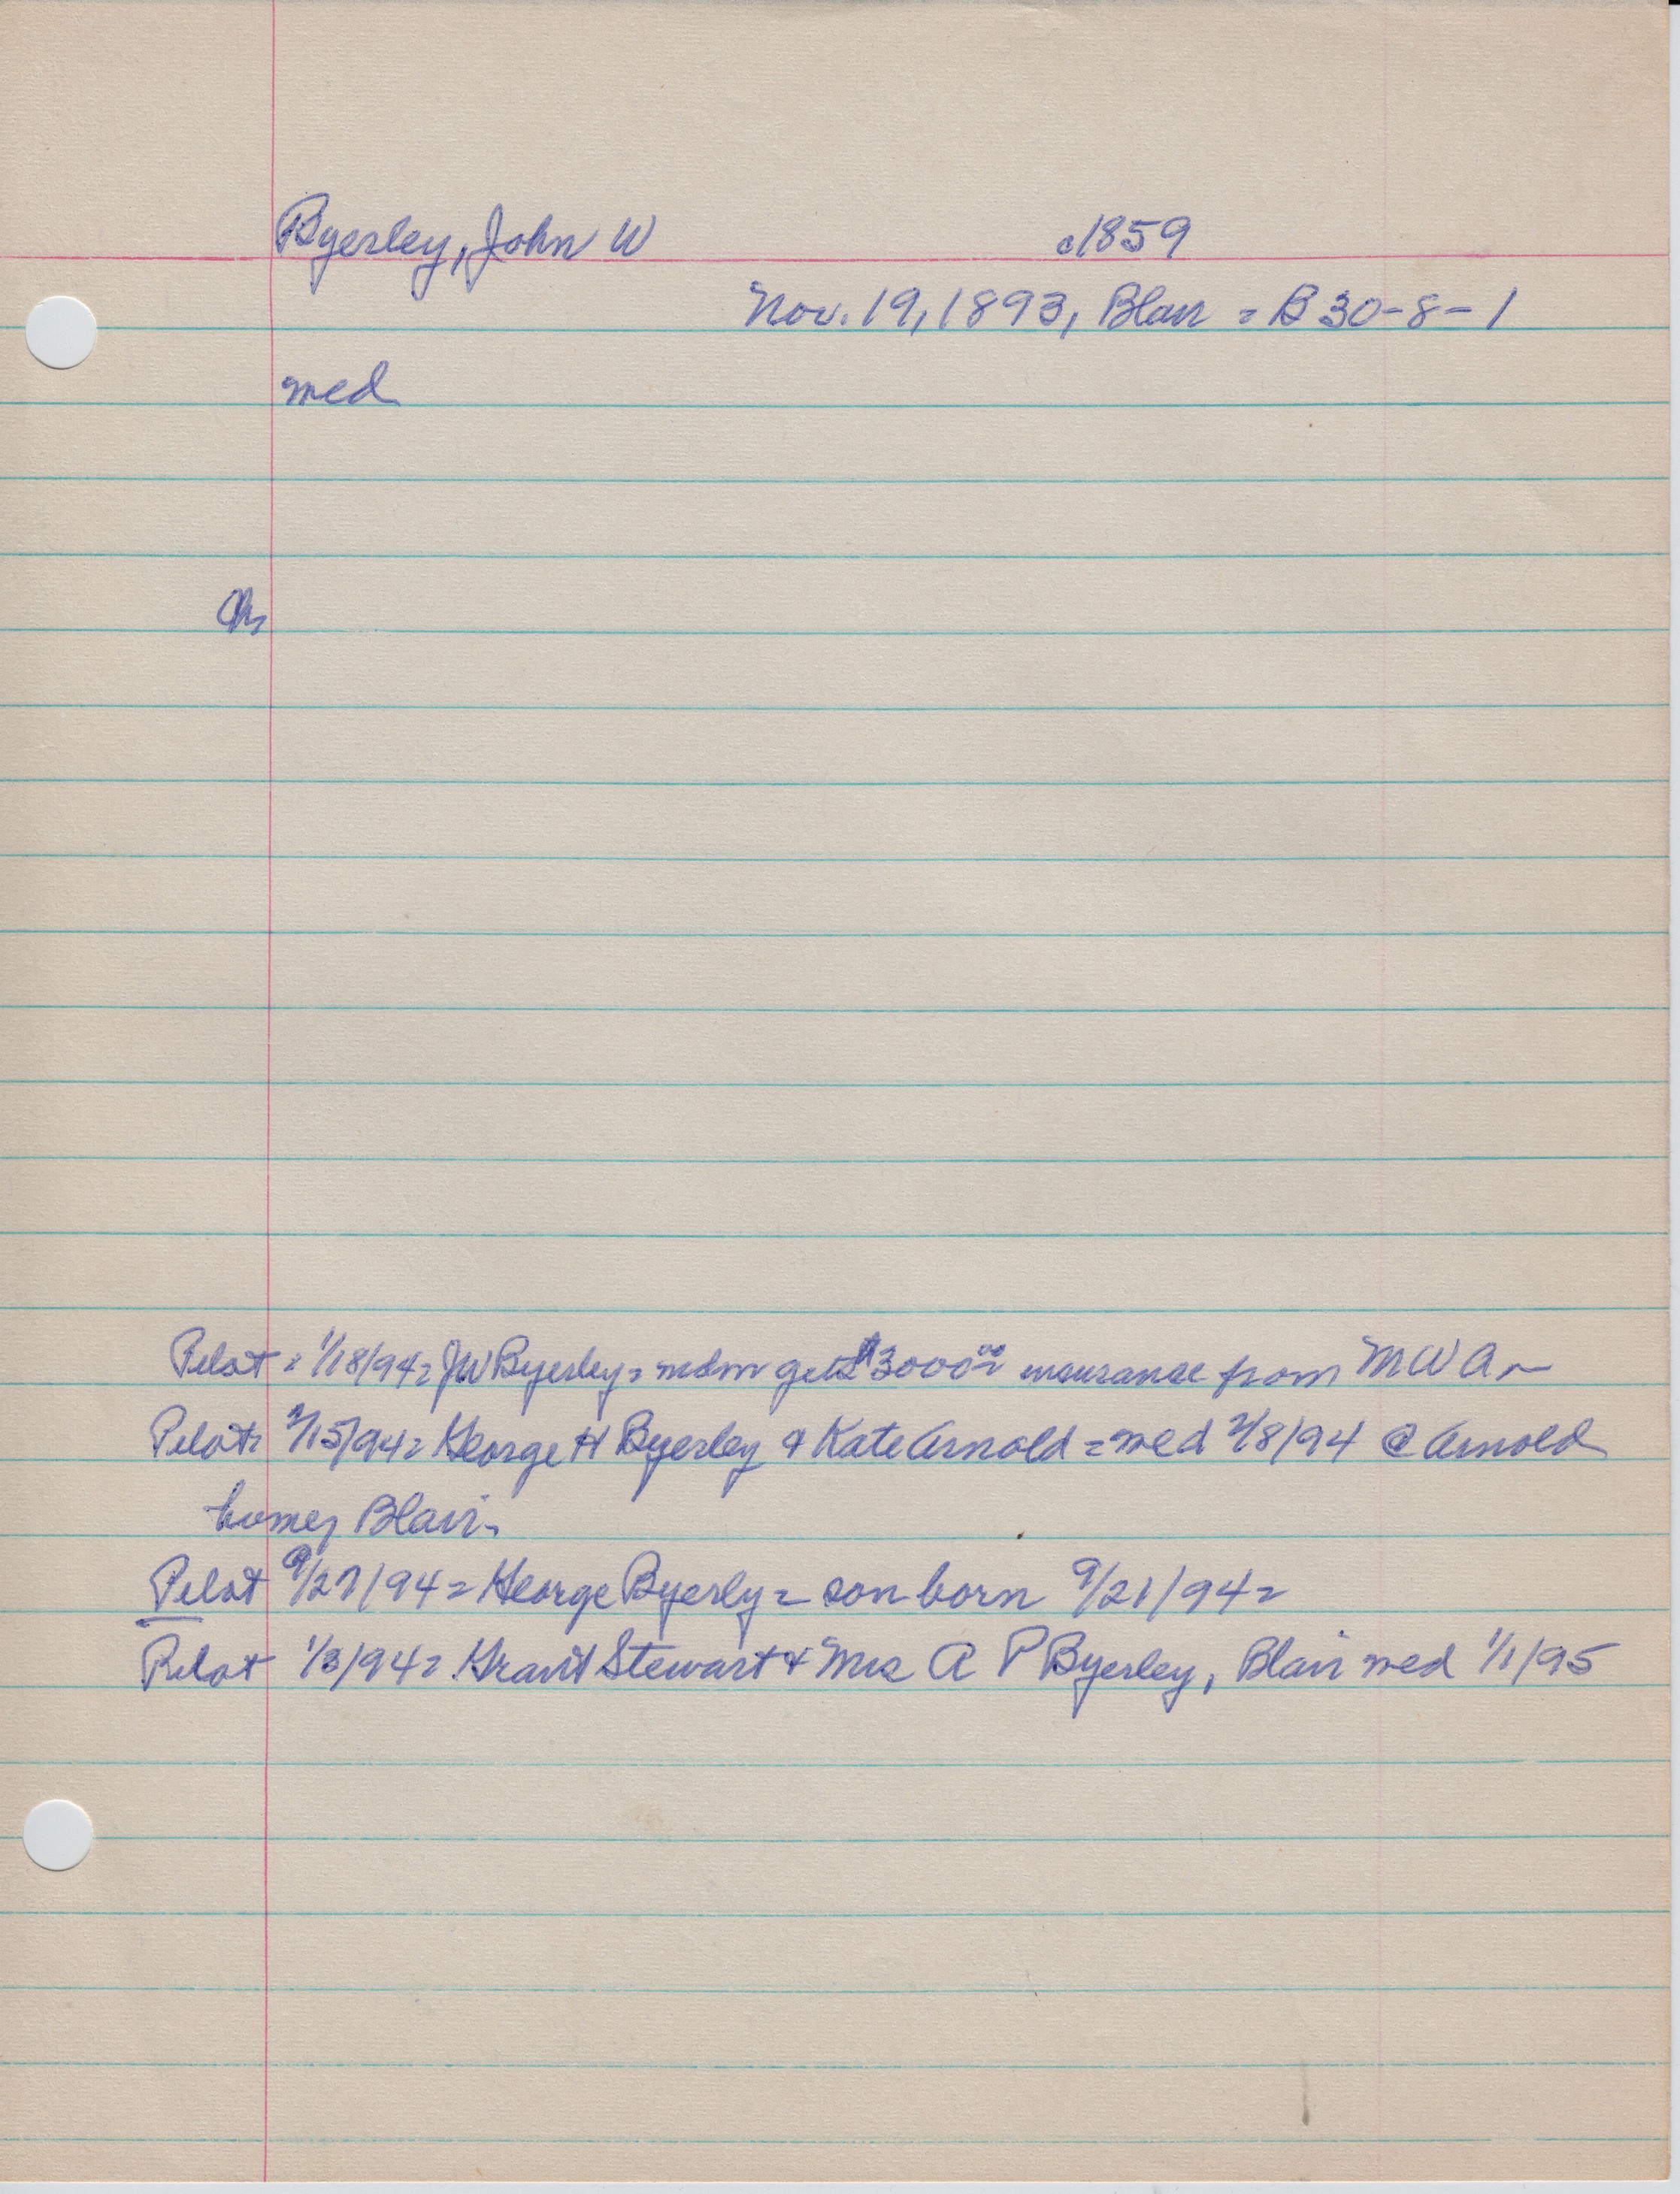 Byerley, John W c1859
Nov. 19, 1893, Blair = B 30-8-1
med
Ch
Pilot = 1/18/94 = JW Byerley = wdm gets $3000 00 insurance from MWA
Pilot = 2/15/94 = George H Byerley & Kate Arnold = med 2/8/94 @ Arnold
home, Blair.
Pilot 9/27/94 = George Byerly = son born 9/21/94 =
Pilot 1/3/94 = Grant Stewart & Mrs A P Byerley, Blair med 1/1/95